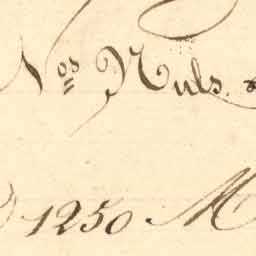 Nos Nuls.
1250 M